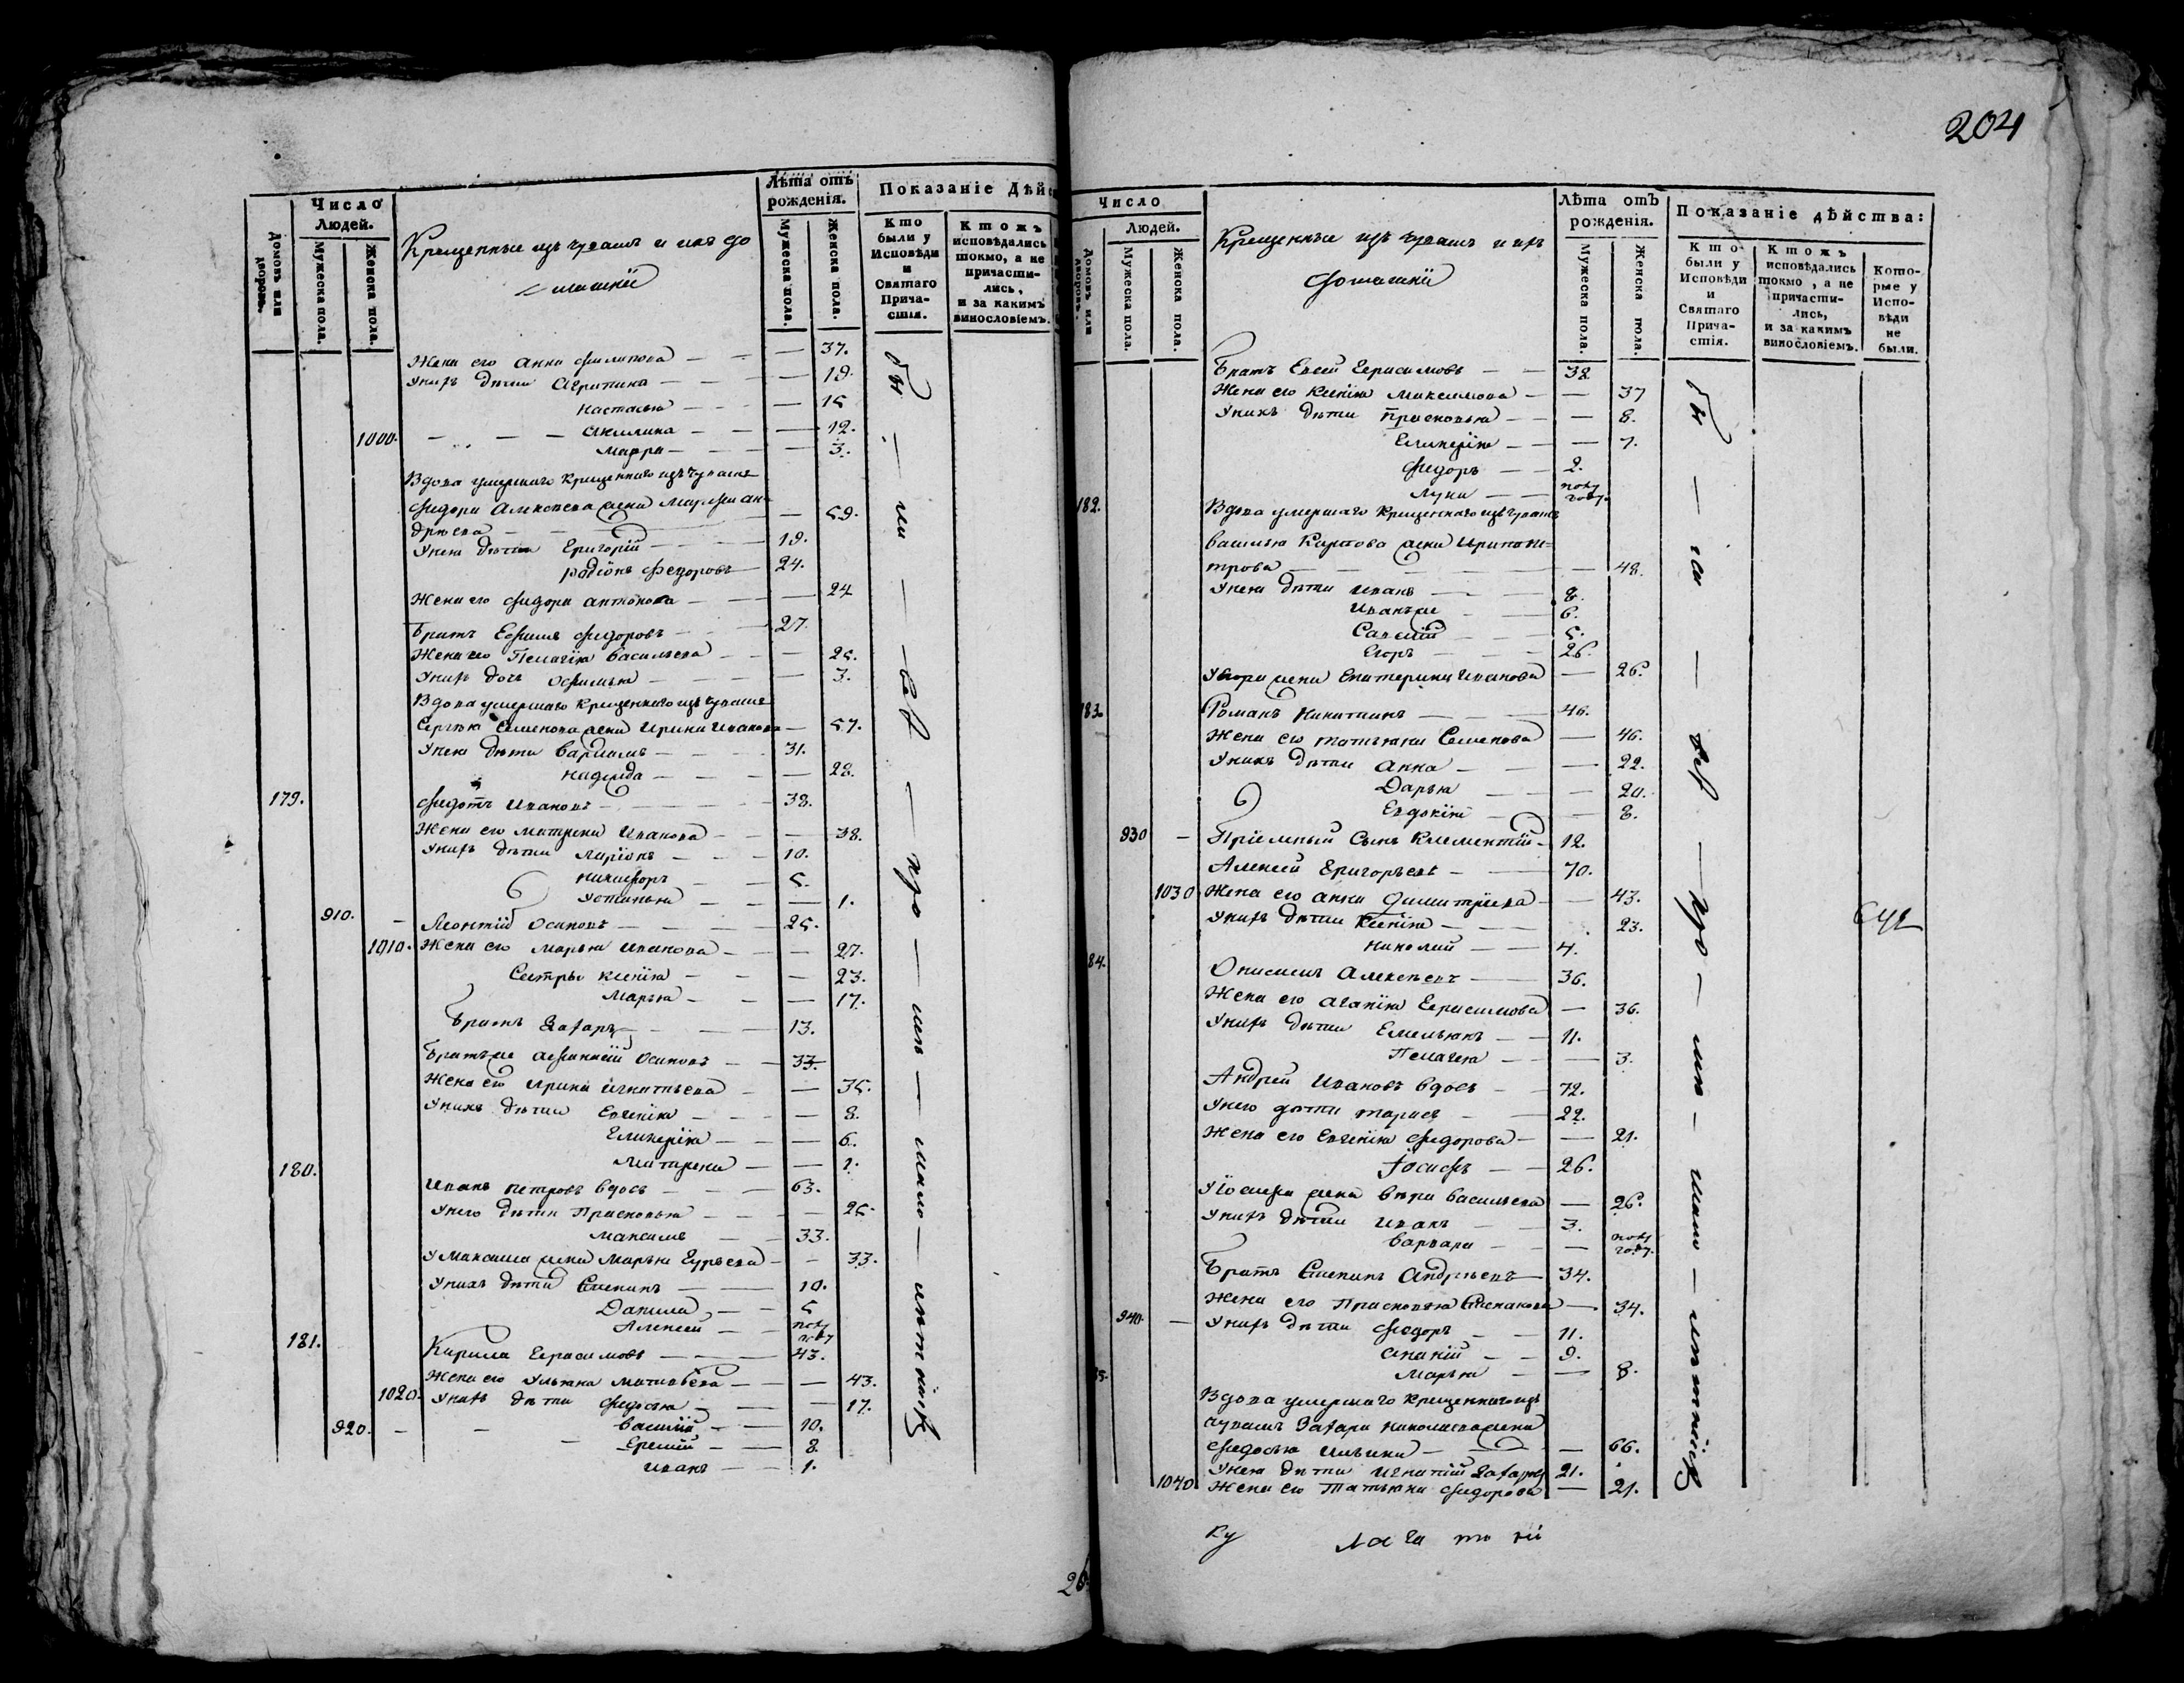 204
Число
Людей.
Домовъ или дворовъ.
Мужеска пола.
Женска пола.
Крещенные изъ чувашъ и ихъ до
машнiи
Лѣта отъ рожденiя.
Мужеска пола.
Женска пола.
Показанiе Дѣйс
Кто были у Исповѣди и Святаго Причастiя.
Ктожъ исповѣдались токмо, а не причастились, и за какимъ винословiемъ.
Жена его Анна Филипова — — — 37.
У нихъ дѣти Агрипина — — — 19.
Настасья — — — 15
1000. — — — Акилина — — — 12.
Марфа — — — 3.
Вдова умершаго крещеннаго изъ чувашъ
Федора Алексѣева жена Марфа Ан=
дрѣева — — — 59.
У нея дѣти Григорiй — — 19.
Родiонъ Федоровъ — 24.
Жена его Федора Антонова — — 24
Братъ Ефимъ Федоровъ — — 27.
Жена его Пелагiя Васильева — — — 25.
У нихъ дочь Офимья — — — 3.
Вдова умершаго крещеннаго изъ чувашъ
Сергѣя Семенова жена Ирина Иванова — 57.
У нея дѣти Варламъ — — 31.
Надежда — — — 28.
179. Федотъ Ивановъ — — — 38.
Жена его Матрена Иванова — — — 38.
У нихъ дѣти Ларiонъ — — — 10.
Никифоръ — — 5.
Устинья — — — 1.
910. — Леонтiй Осиповъ — — — 25.
1010. Жена его Марья Иванова — — — 27.
Сестры Ксенiя — — — 23.
Марья — — — 17.
Братъ Захаръ — — 13.
Братъ же Афанасiй Осиповъ — — 33.
Жена его Ирина Игнатьева — — 35.
У нихъ дѣти Евгенiя — — — 8.
Гликерiя — — — 6.
Матрена — — 1.
180. Иванъ Петровъ вдовъ — — — 63.
У него дѣти Прасковья — — — 25.
Максимъ — — 33.
У Максима жена Марья Гурьева — — 33.
У нихъ дѣти Степанъ — — 10.
Данила — — 5
Алексей — — полу году
181. Кирила Герасимовъ — — — 43.
Жена его Ульяна Матвѣева — — — 43.
1020. У нихъ дѣти Федосья — — — 17.
920. — — Василiй — — 10.
Еремiй — — 8.
Иванъ — — 1.
бы — ли — всѣ — про — шлы
Число
Людей.
Домовъ или дворовъ.
Мужеска пола.
Женска пола.
Крещенные изъ чувашъ и ихъ
домашнiи
Лѣта отъ рожденiя.
Мужеска пола.
Женска пола.
Показанiе дѣйства:
Кто были у Исповѣди и Святаго Причастiя.
Ктожъ исповѣдались токмо, а не причастились, и за какимъ винословiемъ.
Которые у Исповѣди не были.
Братъ Евсей Герасимовъ — — 38
Жена его Ксенiя Максимова — — 37
У нихъ дѣти Прасковья — — 8.
Гликерiя — — — 7.
Федоръ — — 2.
Лука — — полу году.
182. Вдова умершаго крещеннаго изъ чувашъ
Василья Карпова жена Ирина Пе=
трова — — — — 48.
У нея дѣти Иванъ — — 8.
Иванъ же — — 6.
Савелiй — — 5.
Егоръ — — 26.
У Егора жена Екатерина Иванова — 26.
183. Романъ Никитинъ — — — 46.
Жена его Татьяна Семенова — 46.
У нихъ дѣти Анна — — — 22.
Дарья — — — 20.
Евдокiя — — — 8.
930 — Прiемный сынъ Климентiй — 12.
Алексей Григорьевъ — — 70.
1030 Жена его Анна Димитрiева — — 43.
У нихъ дѣти Ксенiя — — — 23.
Николай — — 4.
84. Онисимъ Алексѣевъ — — 36.
Жена его Агапiя Герасимова — 36.
У нихъ дѣти Емельянъ — — 11.
Пелагея — — — 3.
Андрей Ивановъ вдовъ — — 72.
У него дѣти Тарасъ — — 22.
Жена его Евгенiя Федорова — — 21.
Iосифъ — — 26.
У Iосифа жена Вѣра Васильева — 26.
У нихъ дѣти Иванъ — — 3.
Варвара — — — полу году.
Братъ Степанъ Андрѣевъ — 34.
Жена его Прасковья Степанова — 34.
940. — У нихъ дѣти Федоръ — — 11.
Ананiй — — 9.
Марья — — — 8.
85. Вдова умершаго крещеннаго изъ
чувашъ Захара Николаева жена
Федосья Ильина — — — 66.
У нея дѣти Игнатiй Захаровъ 21.
1040 Жена его Татьяна Федорова — 21.